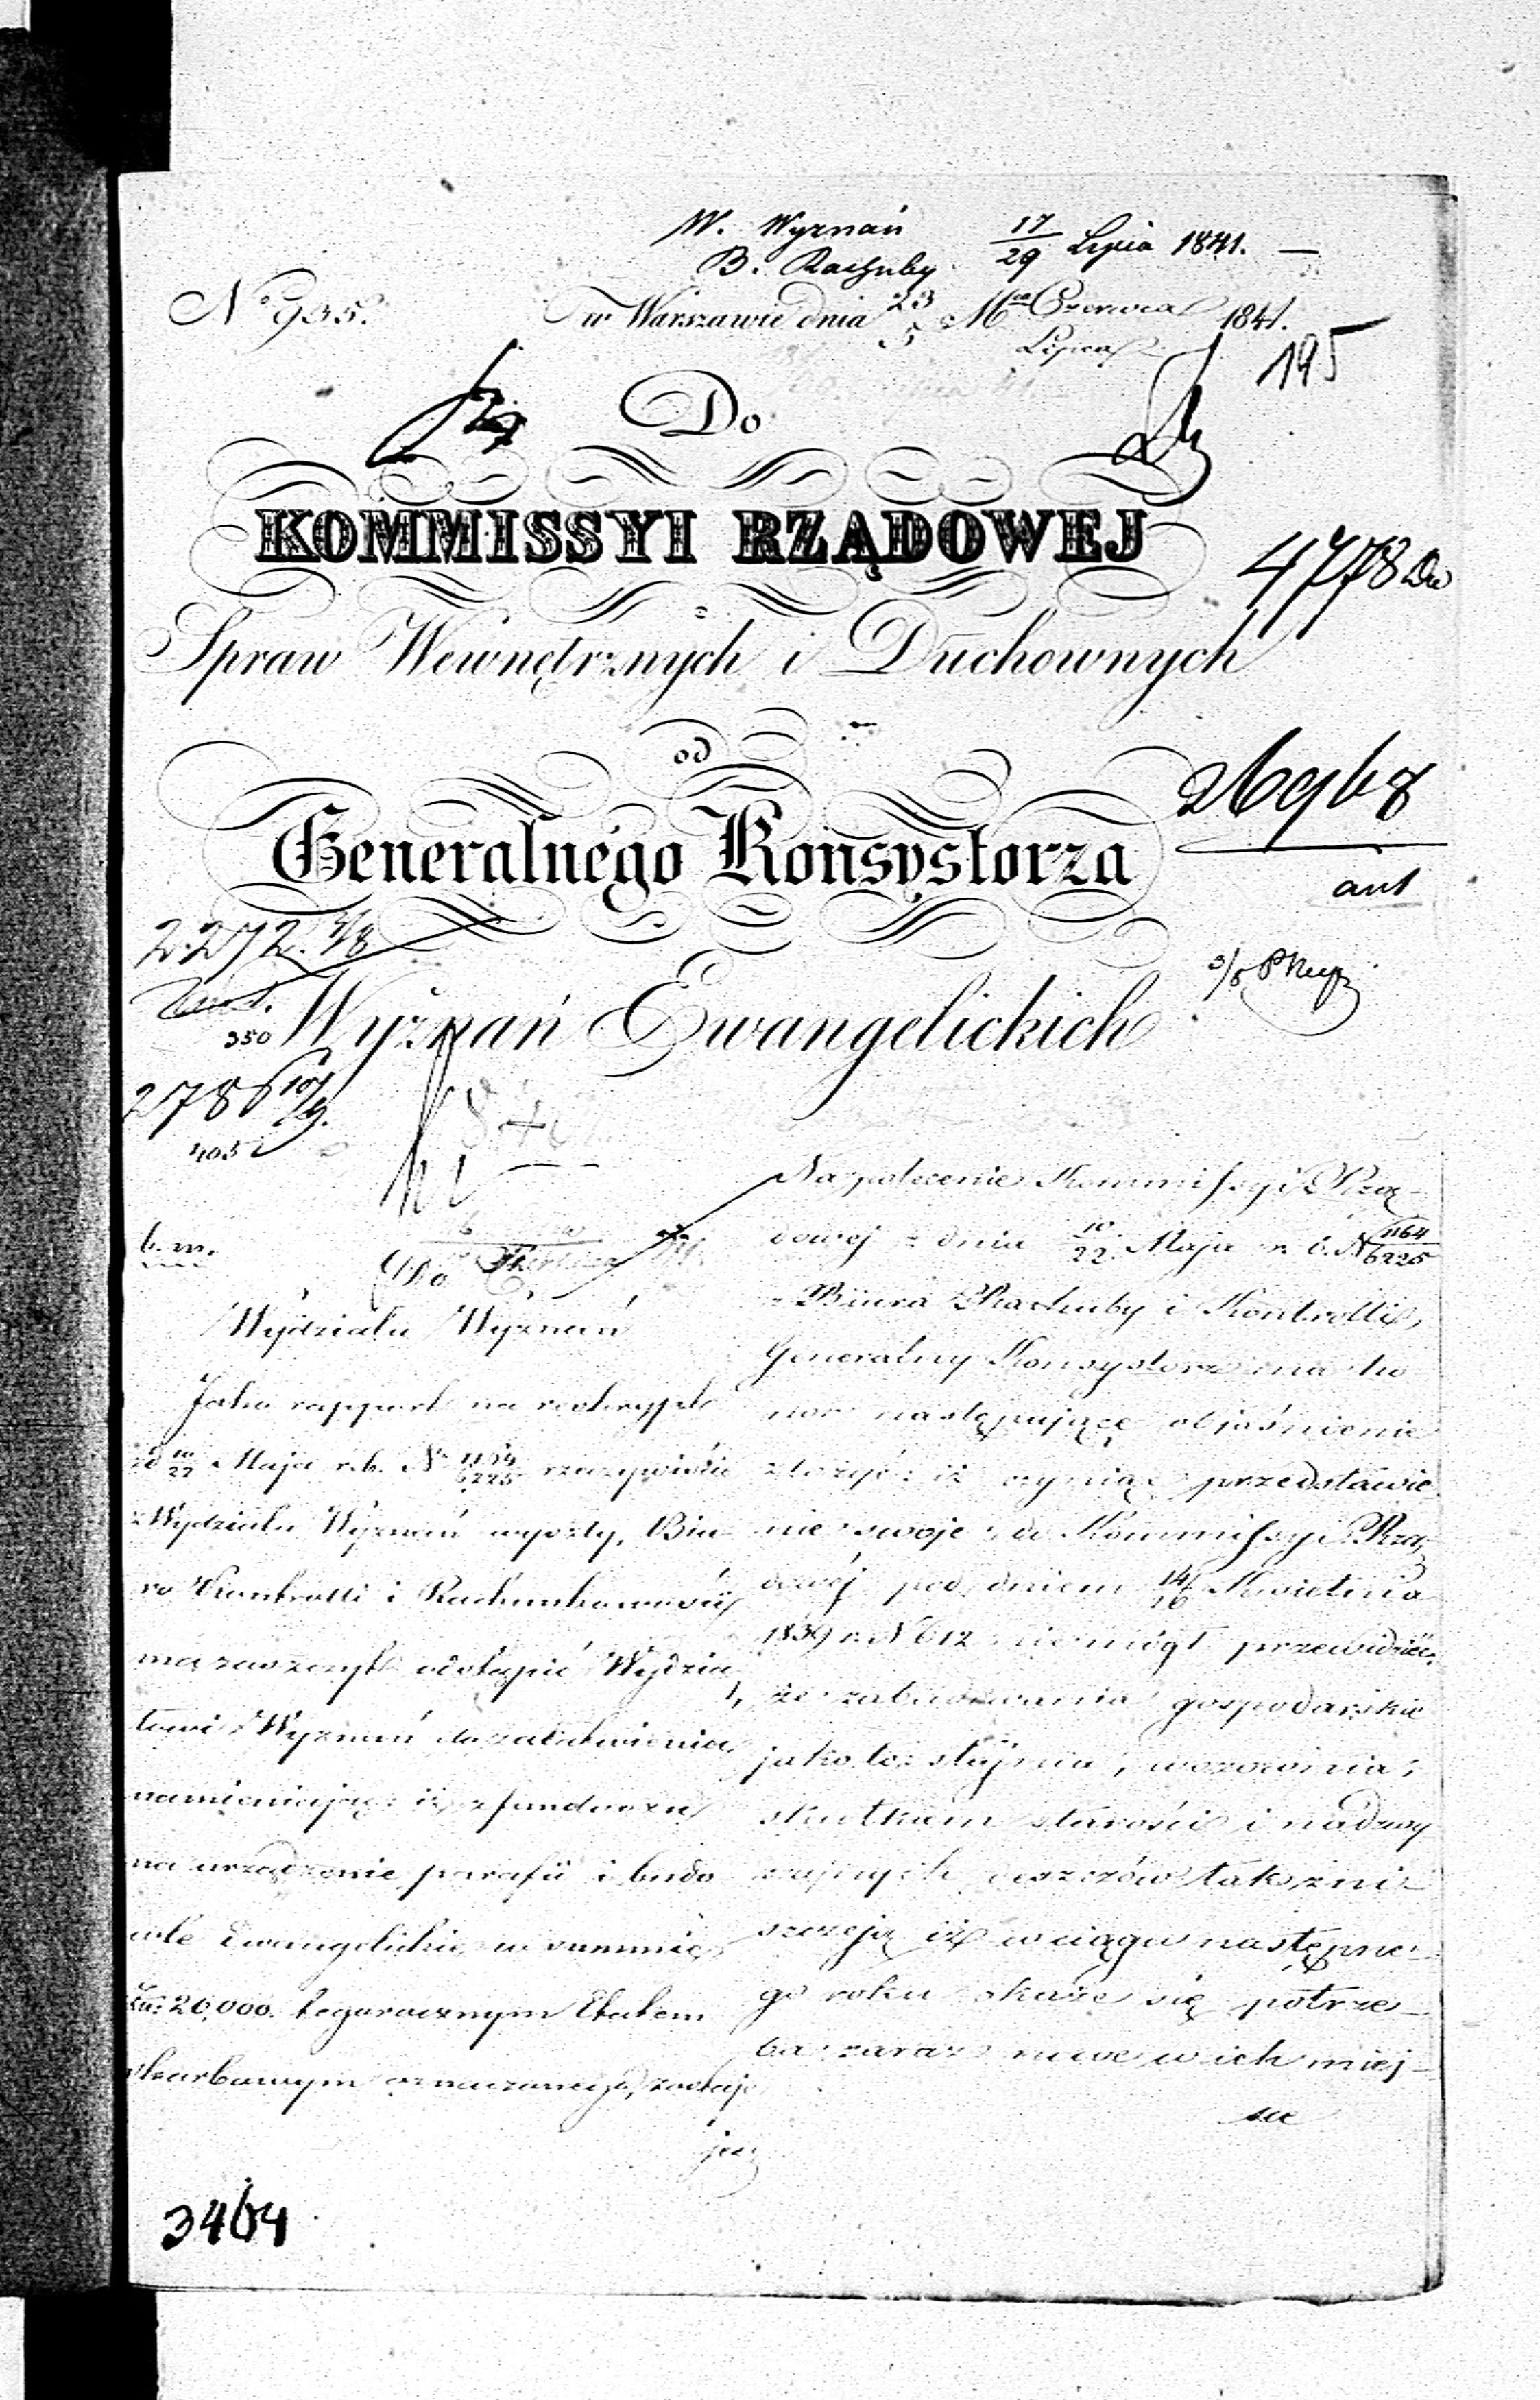 W. Wyznań 17/29 Lipca 1841. —
B. Rachuby
No 935.
w Warszawie dnia 23/5 Mca Czerwca/Lipca 1841.
195
Do
KOMMISSYI RZĄDOWEJ
4778
Spraw Wewnętrznych i Duchownych
od
26968
Generalnego Konsystorza
ant
2272. 4/8
Wyznań Ewangelickich
350
2786 10/9.
405
b. m.
Wydziału Wyznań
Jako rapport na reskrypt
10/22 Maja r.b. No 1164/6225 rzeczywiście
z Wydziału Wyznań wyszły, Biu
ro Kontrolli i Rachunkowości
ma zaszczyt odstąpić Wydzia
łowi Wyznań do załatwienia
namieniając iż z funduszu
na urządzenie parafii i budo
wle Ewangelickie w summie
Zł: 20,000. tegorocznym Etatem
skarbowym oznaczonego, zostaje
jesz
Na polecenie Kommissyi Rzą
dowej z dnia 10/22 Maja r. b. N 1164/6225
z Biura Rachuby i Kontrolli,
Generalny Konsystorz ma ho
nor następujące objaśnienie
złożyć: iż czyniąc przedstawie
nie swoje do Kommissyi Rzą
dowej pod dniem 14/26 Kwietnia
1839 r. N 612 niemógł przewidzieć,
że zabudowania gospodarskie
jako to: stajnia, wozownia,
skutkiem starości i nadzwy
czajnych deszczów tak zni
szczeją iż w ciągu następne
go roku okaże się potrze
ba zaraz nowe w ich miej
sce
3464